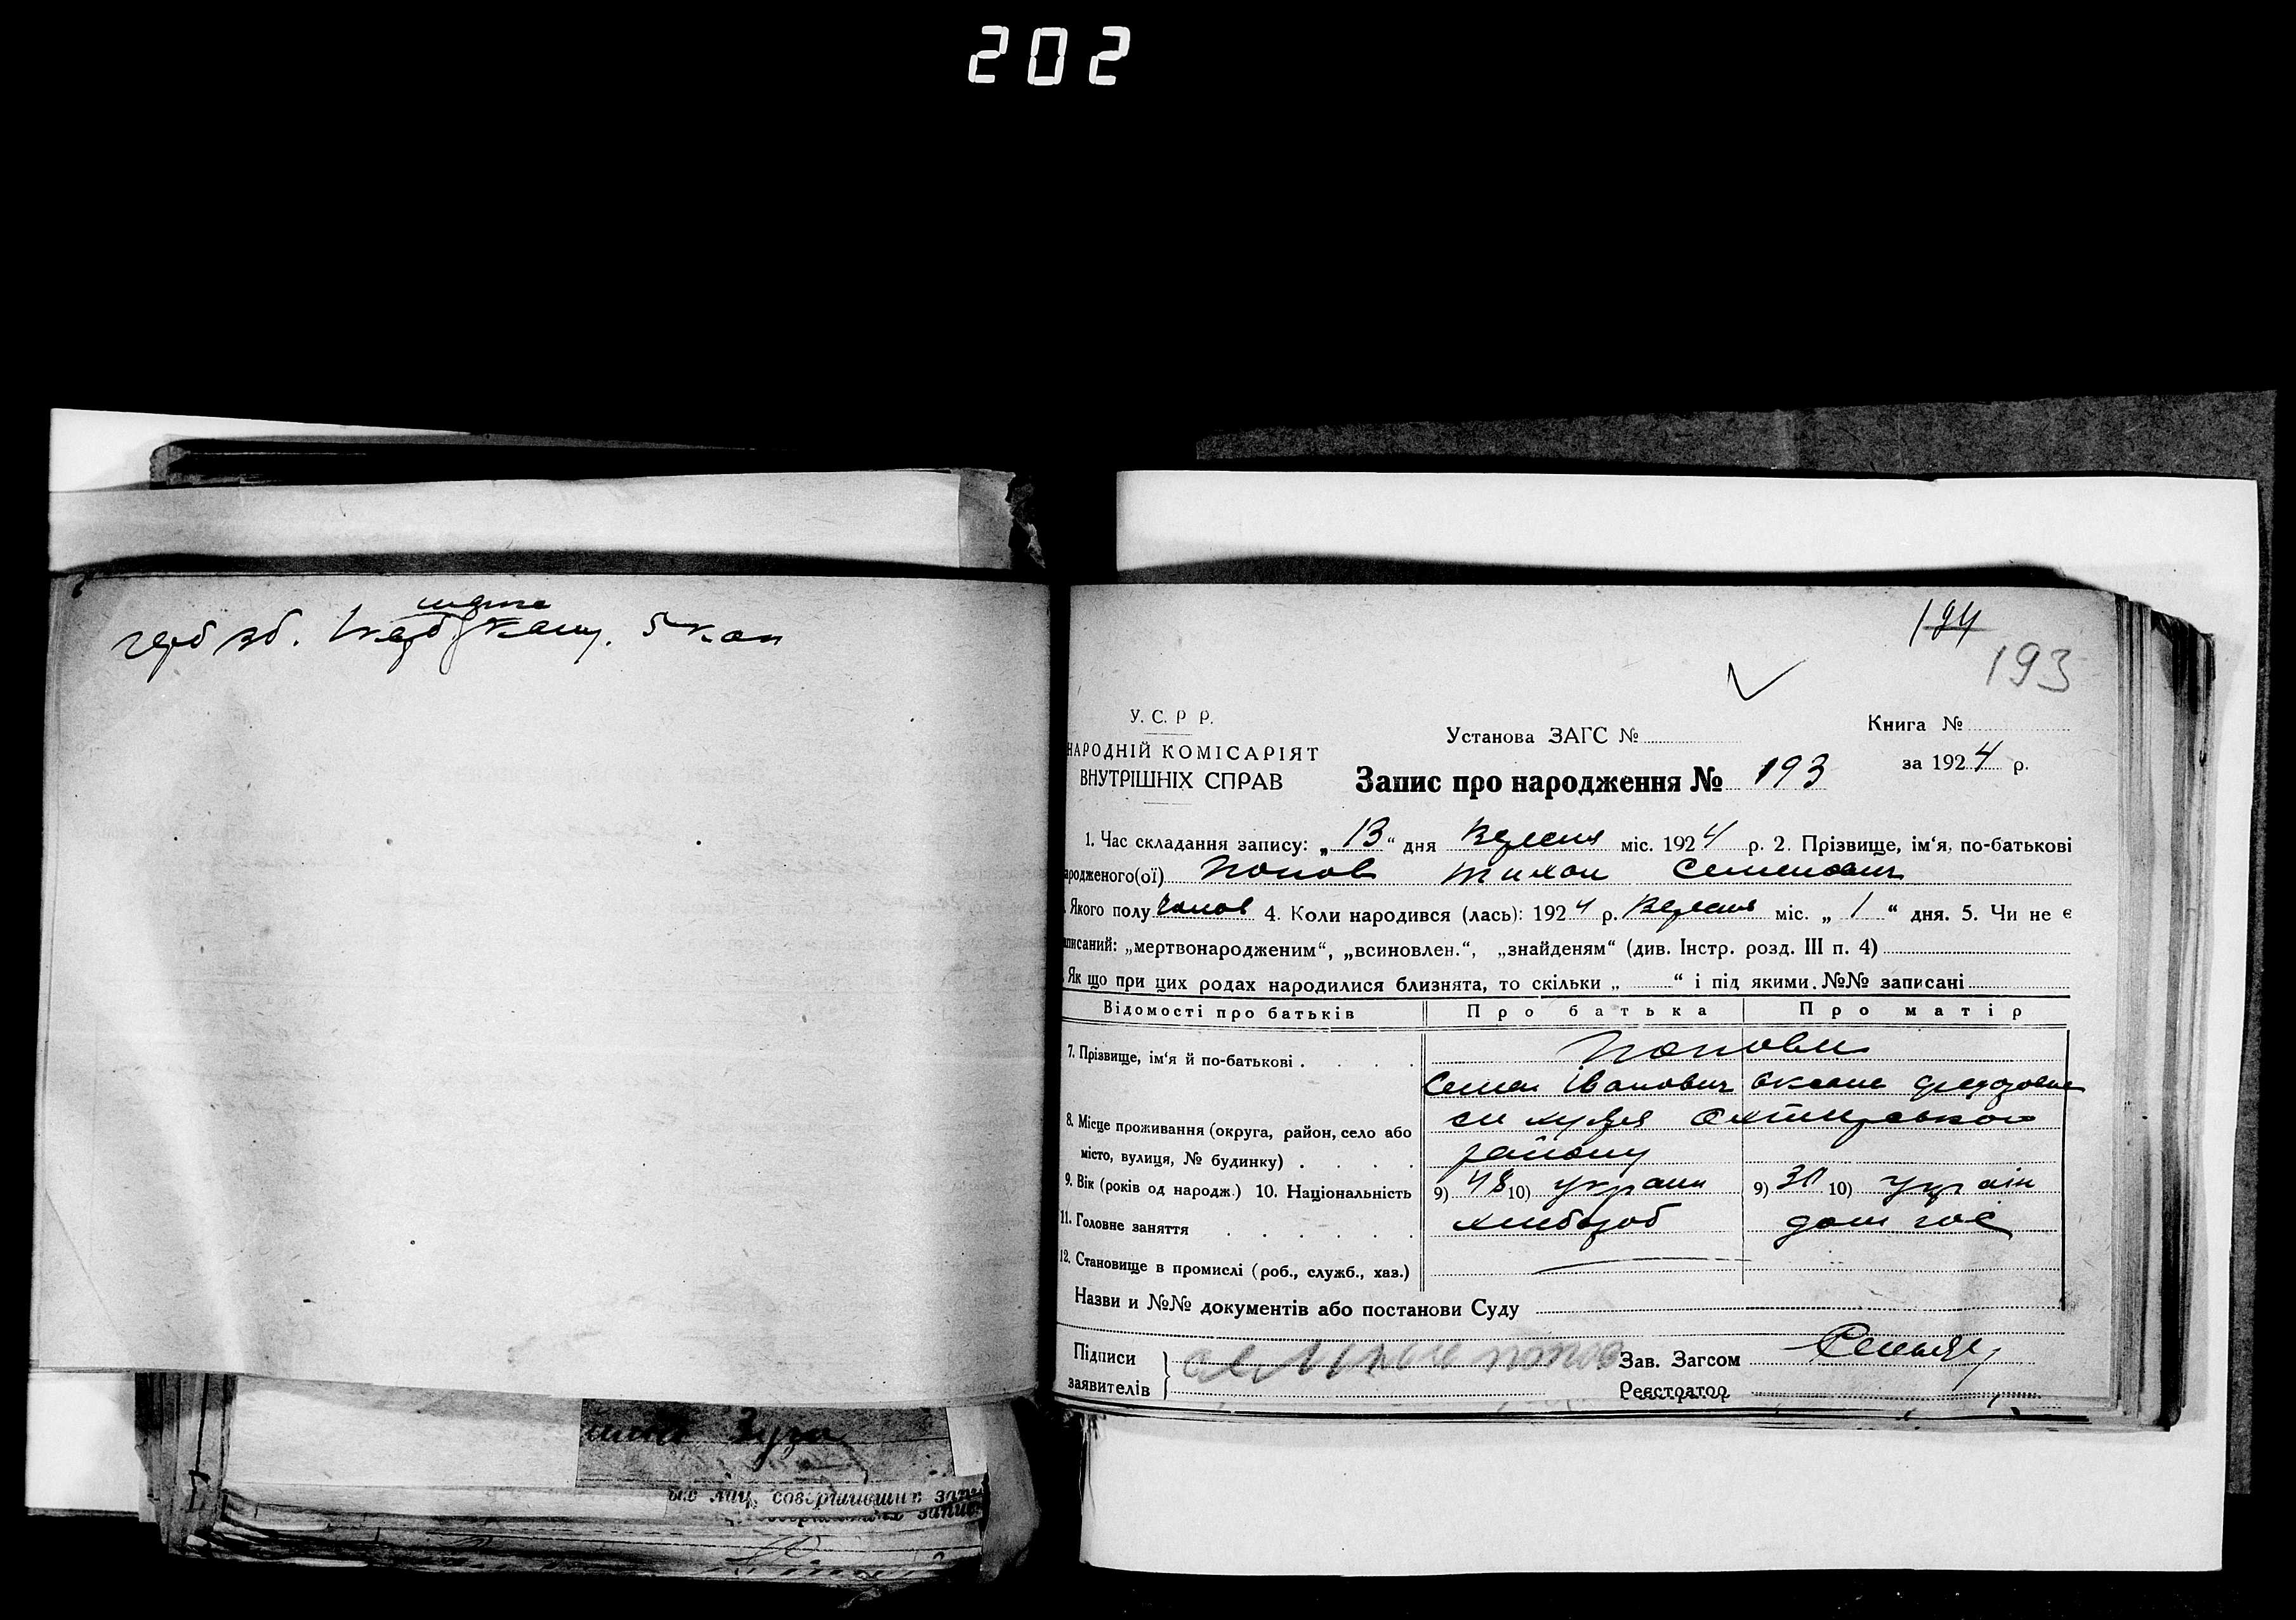 202
герб зб. 1 карб канц. 5 коп
194
193
У. С. Р Р.
НАРОДНІЙ КОМІСАРІЯТ
ВНУТРІШНІХ СПРАВ
Установа ЗАГС №
Книга №
за 1924 р.
Запис про народження № 193
1. Час складання запису: „ 13 “ дня Вересня міс. 1924 р. 2. Прізвище, ім‘я, по-батькові
ародженого(ої) Попов Тихон Семенович
Якого полу чолов 4. Коли народився (лась): 1924 р. Вересня міс. „ 1 “ дня. 5. Чи не є
аписаний: „мертвонародженим“, „всиновлен.“, „знайденям“ (див. Інстр. розд. III п. 4)
Як що при цих родах народилися близнята, то скільки „ “ і під якими №№ записані
Відомості про батьків Про батька Про матір
7. Прізвище, ім‘я й по-батькові . . . . Попови
Семен Іванович Оксана Федоровна
8. Місце проживання (округа, район, село або Охтирського
місто, вулиця, № будинку) . . . . району
9. Вік (років од народж.) 10. Національність 9) 48 10) україн 9) 30 10) україн
11. Головне заняття . . . . . . хлібороб дом гос
12. Становище в промислі (роб., служб., хаз.)
Назви и №№ документів або постанови Суду
Підписи
заявителів
Попов
Зав. Загсом
Реєстратор
Зуго
ых лиц, совершивших запи
запис